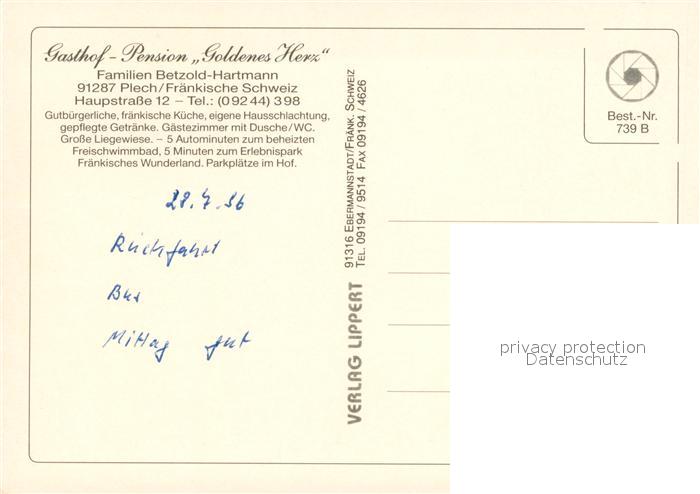 Gasthof – Pension „Goldenes Herz“
Familien Betzold-Hartmann
91287 Plech/Fränkische Schweiz
Haupstraße 12 – Tel.: (09244) 398
Gutbürgerliche, fränkische Küche, eigene Hausschlachtung,
gepflegte Getränke. Gästezimmer mit Dusche/WC.
Große Liegewiese. – 5 Autominuten zum beheizten
Freischwimmbad, 5 Minuten zum Erlebnispark
Fränkisches Wunderland. Parkplätze im Hof.
28.7.96
Rückfahrt
Bus
Mittag gut
VERLAG LIPPERT
91316 EBERMANNSTADT/FRÄNK. SCHWEIZ
TEL. 09194/9514 FAX 09194/4626
Best.-Nr.
739 B
privacy protection
Datenschutz